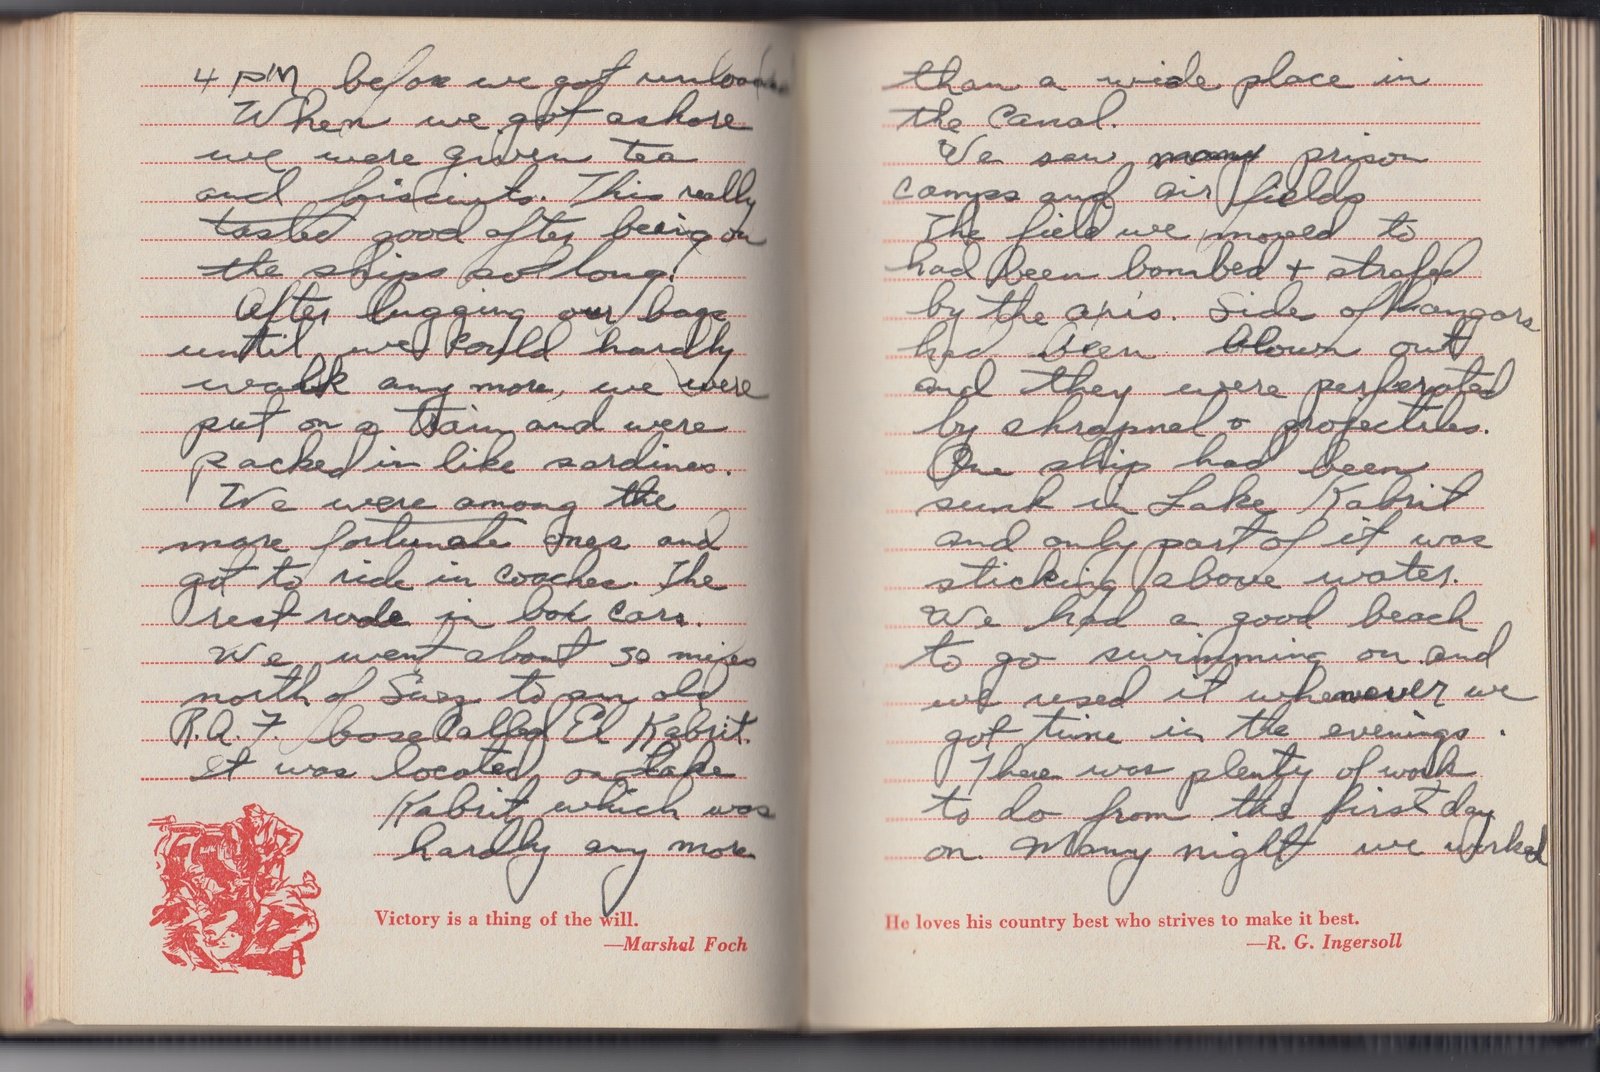 4 PM before we got unloaded
When we got ashore
we were given tea
and biscuits. This really
tasted good after being on
the ships so long!
After lugging our bags
until we could hardly
walk any more, we were
put on a train and were
packed in like sardines.
We were among the
more fortunate ones and
got to ride in coaches. The
rest rode in box cars.
We went about 50 miles
north of Suez to an old
R.A.F. base called El Kabrit.
It was located on Lake
Kabrit which was
hardly any more
Victory is a thing of the will.
—Marshal Foch
than a wide place in
the Canal.
We saw many prison
camps and air fields
The field we moved to
had been bombed + strafed
by the axis. Side of hangars
had been blown out
and they were perferated
by shrapnel + projectiles.
One ship had been
sunk in Lake Kabrit
and only part of it was
sticking above water.
We had a good beach
to go swimming on and
we used it whenever we
got time in the evenings.
There was plenty of work
to do from the first day
on. Many night we worked
He loves his country best who strives to make it best.
—R. G. Ingersoll